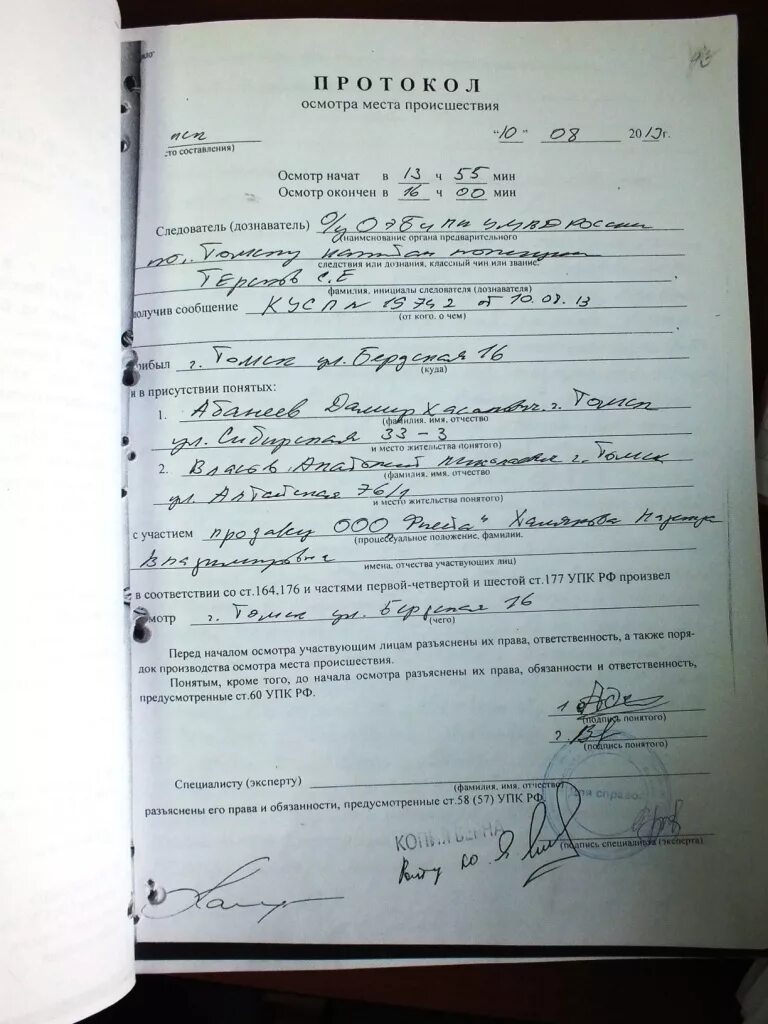 93
ПРОТОКОЛ
осмотра места происшествия
"10" 08 2013г.
то составления)
Осмотр начат в 13 ч 55 мин
Осмотр окончен в 16 ч 00 мин
Следователь (дознаватель) О/у ОЭБ и ПК УМВД России
(наименование органа предварительного
по г. Томску капитан полиции
следствия или дознания, классный чин или звание,
С.Е
фамилия, инициалы следователя (дознавателя)
получив сообщение КУСП № 19742 от 10.08.13
(от кого, о чем)
прибыл г. Томск ул. Бердская 16
(куда)
и в присутствии понятых:
1. Абанеев Дамир Хасанович г. Томск
(фамилия, имя, отчество
ул. Сибирская 33 - 3
и место жительства понятого)
2. Власов Анатолий Николаевич г. Томск
(фамилия, имя, отчество
ул. Алтайская 76/1
и место жительства понятого)
с участием ООО
(процессуальное положение, фамилии,
Владимировна
имена, отчества участвующих лиц)
в соответствии со ст.164,176 и частями первой-четвертой и шестой ст.177 УПК РФ произвел
осмотр г. Томск ул. Бердская 16
(чего)
Перед началом осмотра участвующим лицам разъяснены их права, ответственность, а также поря-
док производства осмотра места происшествия.
Понятым, кроме того, до начала осмотра разъяснены их права, обязанности и ответственность,
предусмотренные ст.60 УПК РФ.
1
(подпись понятого)
2.
(подпись понятого)
Специалисту (эксперту)
(фамилия, имя, отчество)
разъяснены его права и обязанности, предусмотренные ст.58 (57) УПК РФ
для справок
КОПИЯ ВЕРНА
(подпись специалиста (эксперта)